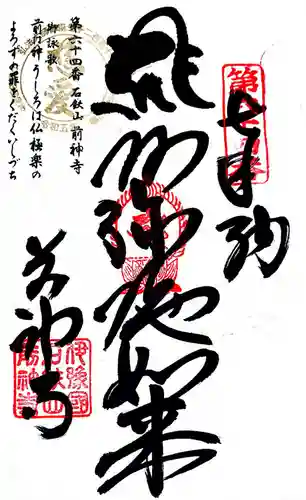 奉納
第六十四番
阿弥陀如来
第六十四番 石鈇山 前神寺
御詠歌
前は神うしろは仏極楽の
よろずの罪をくだくいしづち
前神寺
伊豫國
石鈇山
前神寺